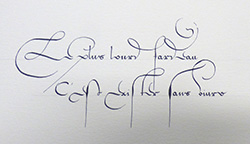 Le plus lourd fardeau
C'est exister sans vivre